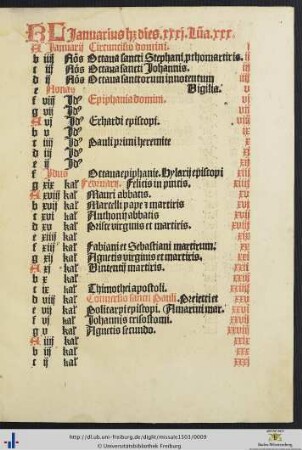 KL Januarius hz dies .xxxj. Lūa .xxx.
A Januarij Circumcisio domini. i
b iiij Nōs Octaua sancti Stephani, pthomartiris. ii
c iij Nōs Octaua sancti Johannis. iii
d ij Nōs Octaua sanctorum innocentum iiii
e Nonas Vigilia. v
f viij Jd⁹ Epiphania domini. vi
g vij Jd⁹ vii
A vj Jd⁹ Erhardi episcopi. viii
b v Jd⁹ ix
c iiij Jd⁹ Pauli primi heremite x
d iij Jd⁹ xi
e ij Jd⁹ xii
f Jdus Octaua epiphanie. Hylarij episcopi xiii
g xix kal' Februarij. Felicis in pincis. xiiii
A xviij kal' Mauri abbatis. xv
b xvij kal' Marcelli pape et martiris xvi
c xvi kal' Anthonij abbatis xvii
d xv kal' Prisce virginis et martiris. xviii
e xiiij kal' xix
f xiij kal' Fabiani et Sebastiani martirum. xx
g xij kal' Agnetis virginis et martiris. xxi
A xj kal' Vincentij martiris. xxii
b x kal' xxiii
c ix kal' Thimothei apostoli. xxiiii
d viij kal' Conuersio sancti Pauli. Preiecti et xxv
e vij kal' Policarpi episcopi. Amarini mar. xxvi
f vj kal' Johannis crisostomi. xxvii
g v kal' Agnetis secundo. xxviii
A iiij kal' xxix
b iij kal' xxx
c ij kal' xxxi
http://dl.ub.uni-freiburg.de/diglit/missale1503/0009
© Universitätsbibliothek Freiburg
Baden-Württemberg